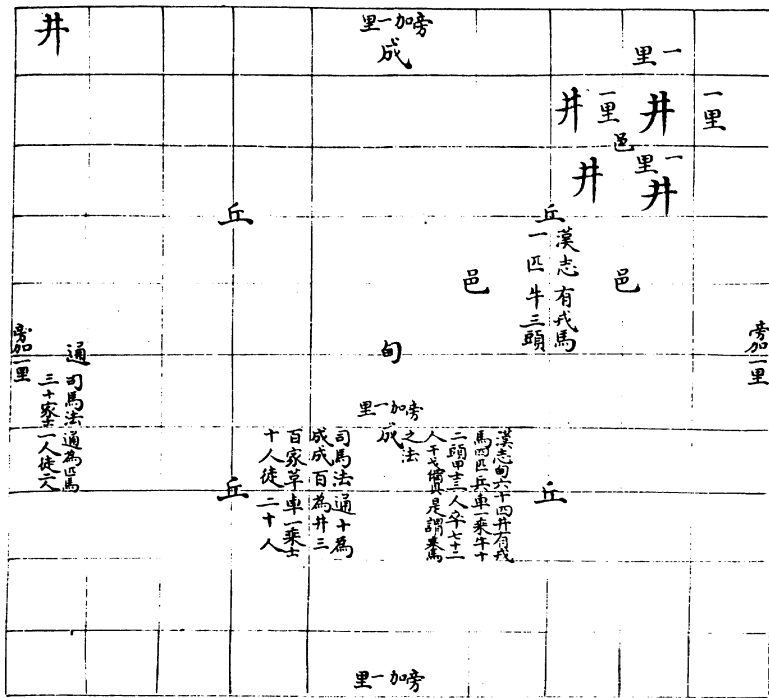 井
旁加一里
成
一里
一里
一里
井
井
邑
一里
井
井
丘
丘
漢志有戎馬
一匹牛三頭
邑
邑
旁加一里
甸
旁加一里
通
司馬法通為匹馬
三十家士一人徒二人
旁加一里
成
之法
漢志甸六十四井有戎
馬四匹兵車一乘牛十
二頭甲士三人卒七十二
人干戈備具是謂乘馬
司馬法通十為
成成百為井三
百家革車一乘士
十人徒二十人
丘
丘
旁加一里